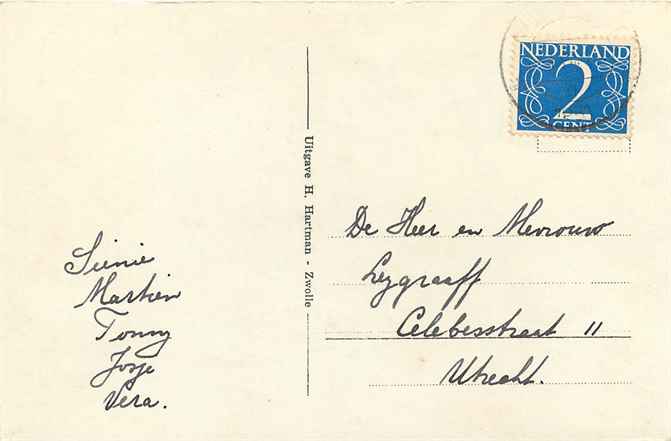 NEDERLAND
2
CENT
Uitgave H. Hartman - Zwolle
Sienie
Martien
Tonny
Josje
Vera.
De Heer en Mevrouw
Leygraaff
Celebesstraat 11
Utrecht.